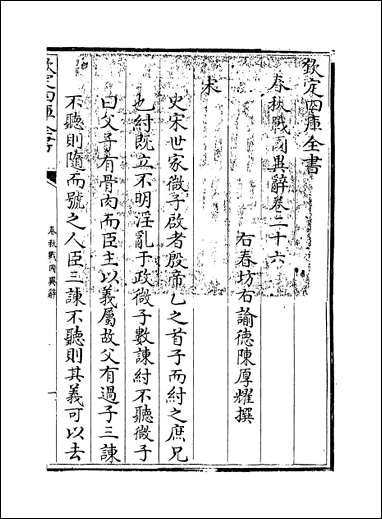 欽定四庫全書
春秋戰國異辭卷二十六
右春坊右諭德陳厚耀撰
宋
史宋世家微子啟者殷帝乙之首子而紂之庶兄
也紂既立不明淫亂于政微子數諫紂不聽微子
曰父子有骨肉而臣主以義屬故父有過子三諫
不聽則隨而號之人臣三諫不聽則其義可以去
欽定四庫全書
春秋戰國異辭
一